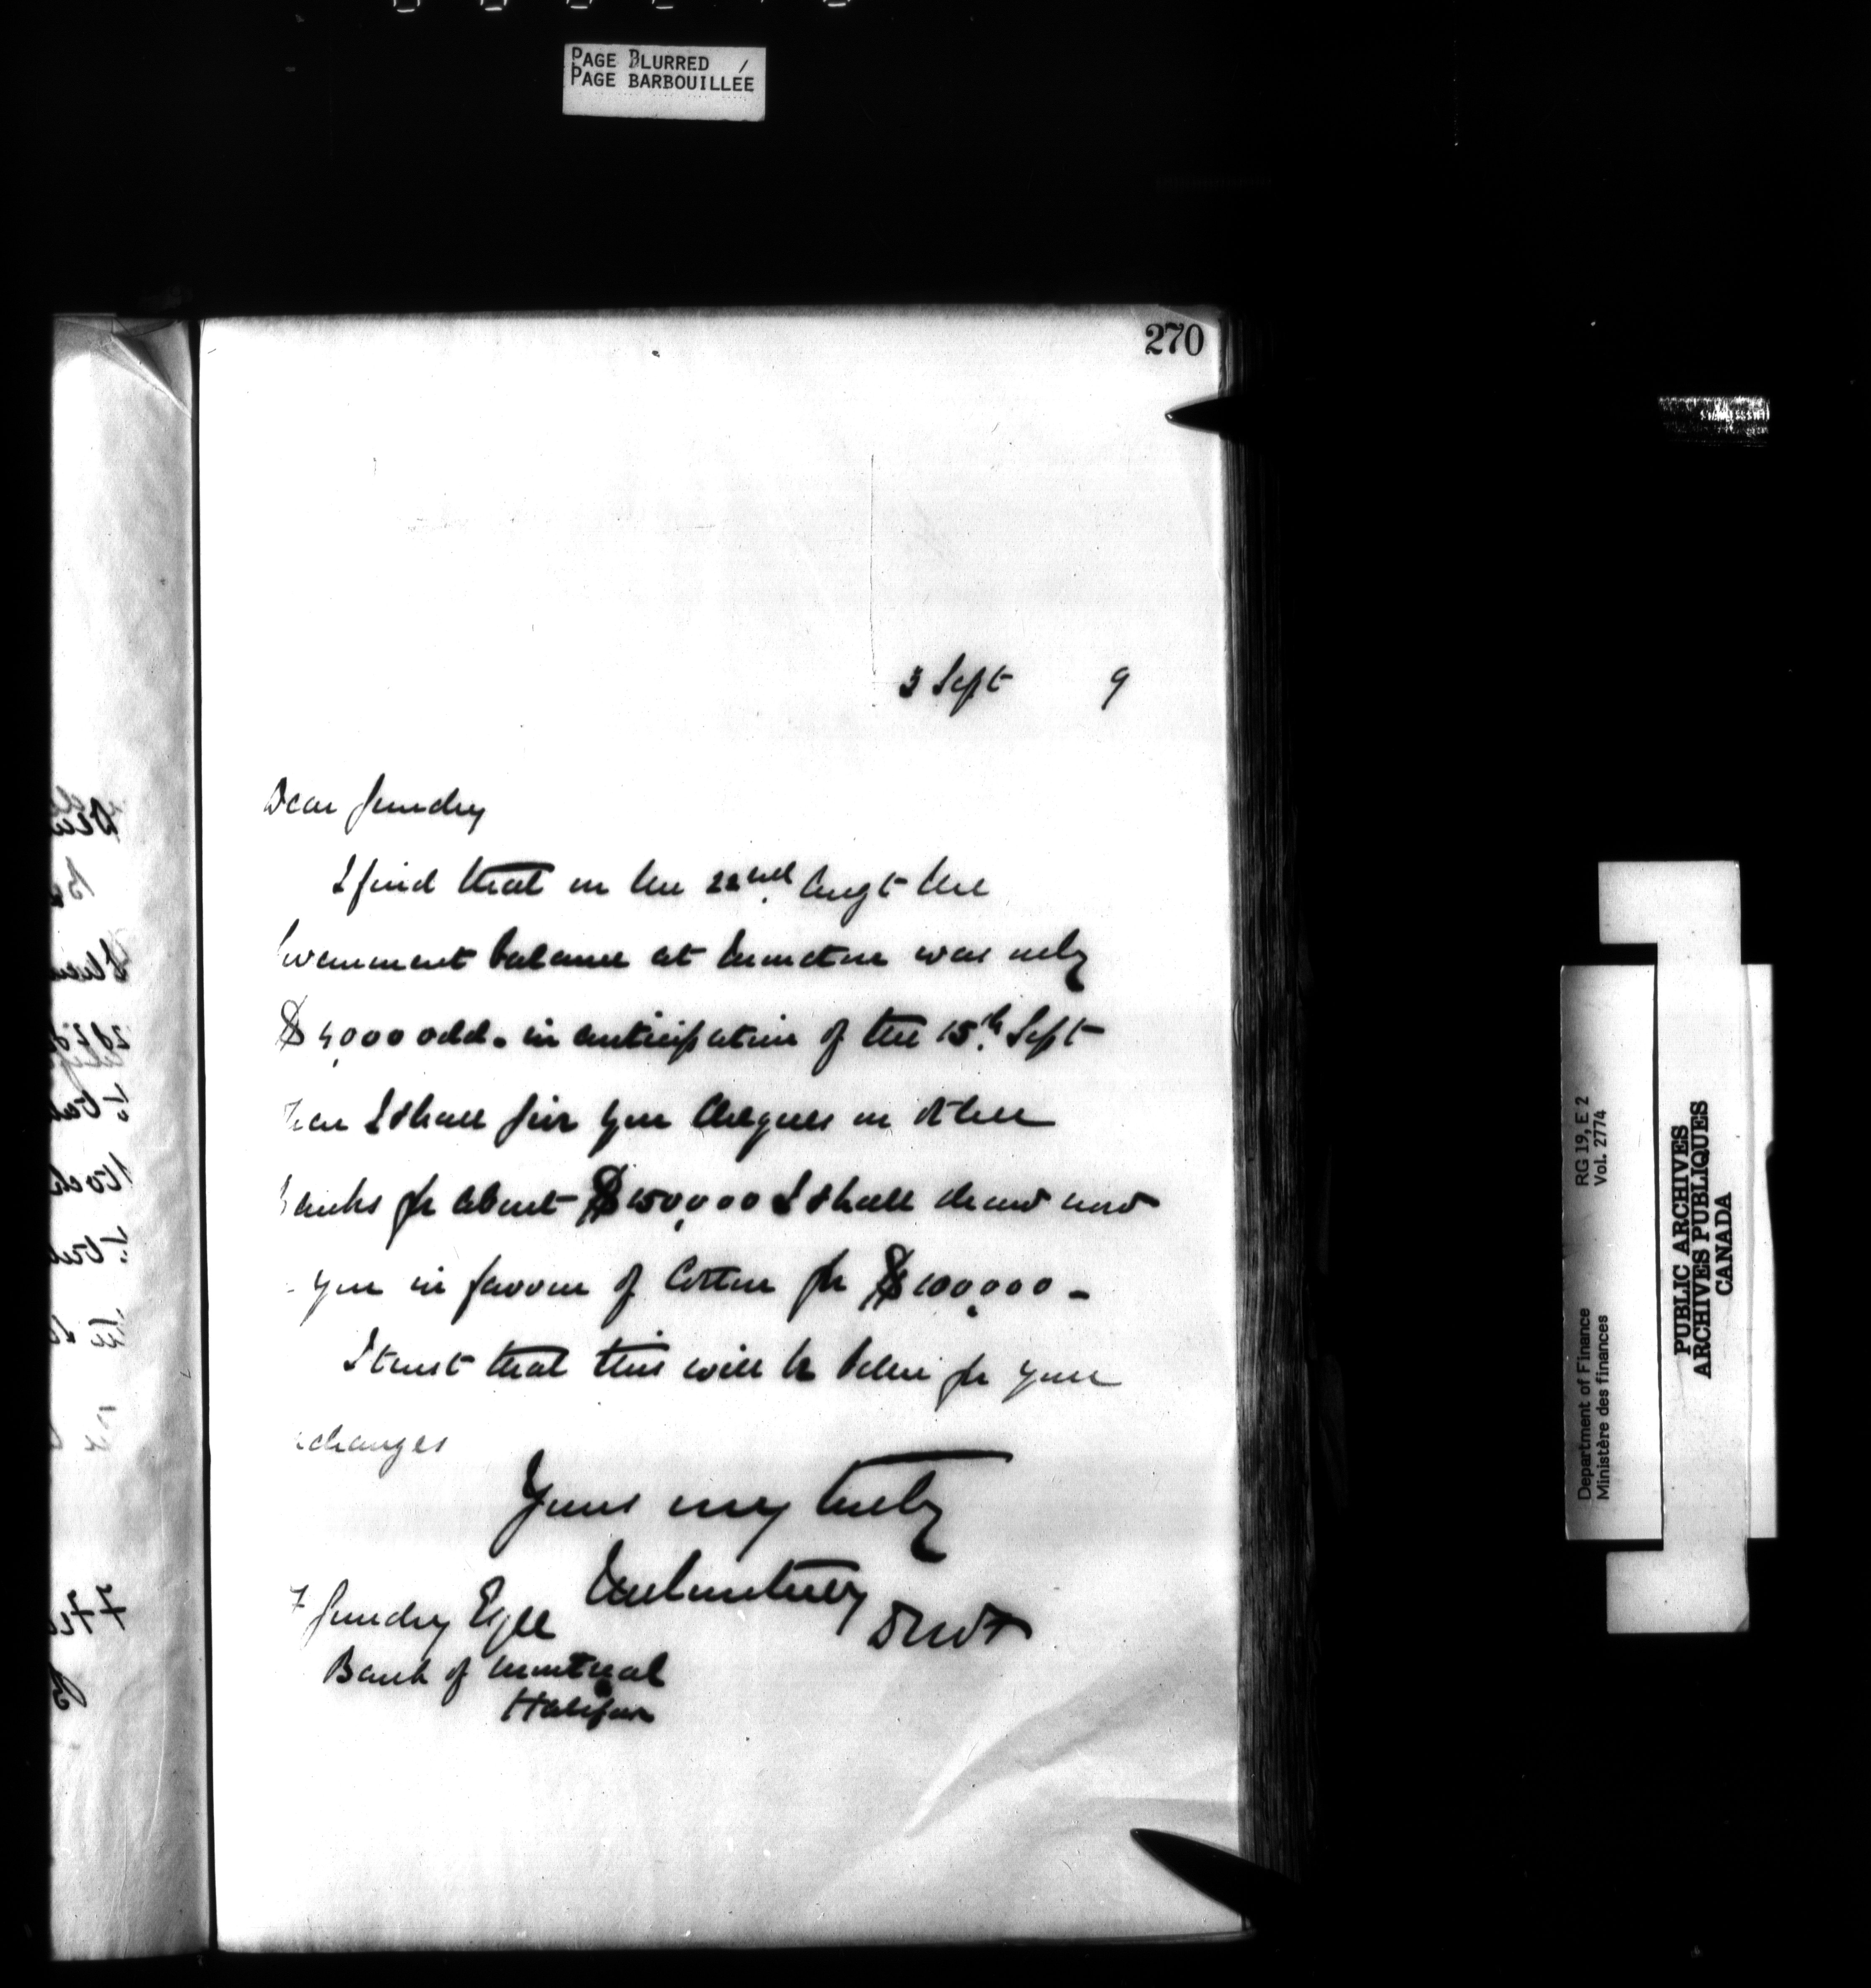 PAGE BLURRED
PAGE BARBOUILLÉE
270
3 Sept 9
Dear Gundry
I find that on the 22nd Augt the
Government balance at Moncton was only
$4,000 odd. in anticipation of the 15th Sept
I shall give you cheques on other
Banks for about $150,000 I shall draw now
you in favour of Cotton for $100,000 -
I trust that this will be better for your
xchanges
Yours very truly
DMF
F Gundry Esqre
Bank of Montreal
Halifax
Department of Finance RG 19, E 2
Ministère des finances Vol. 2774
PUBLIC ARCHIVES
ARCHIVES PUBLIQUES
CANADA